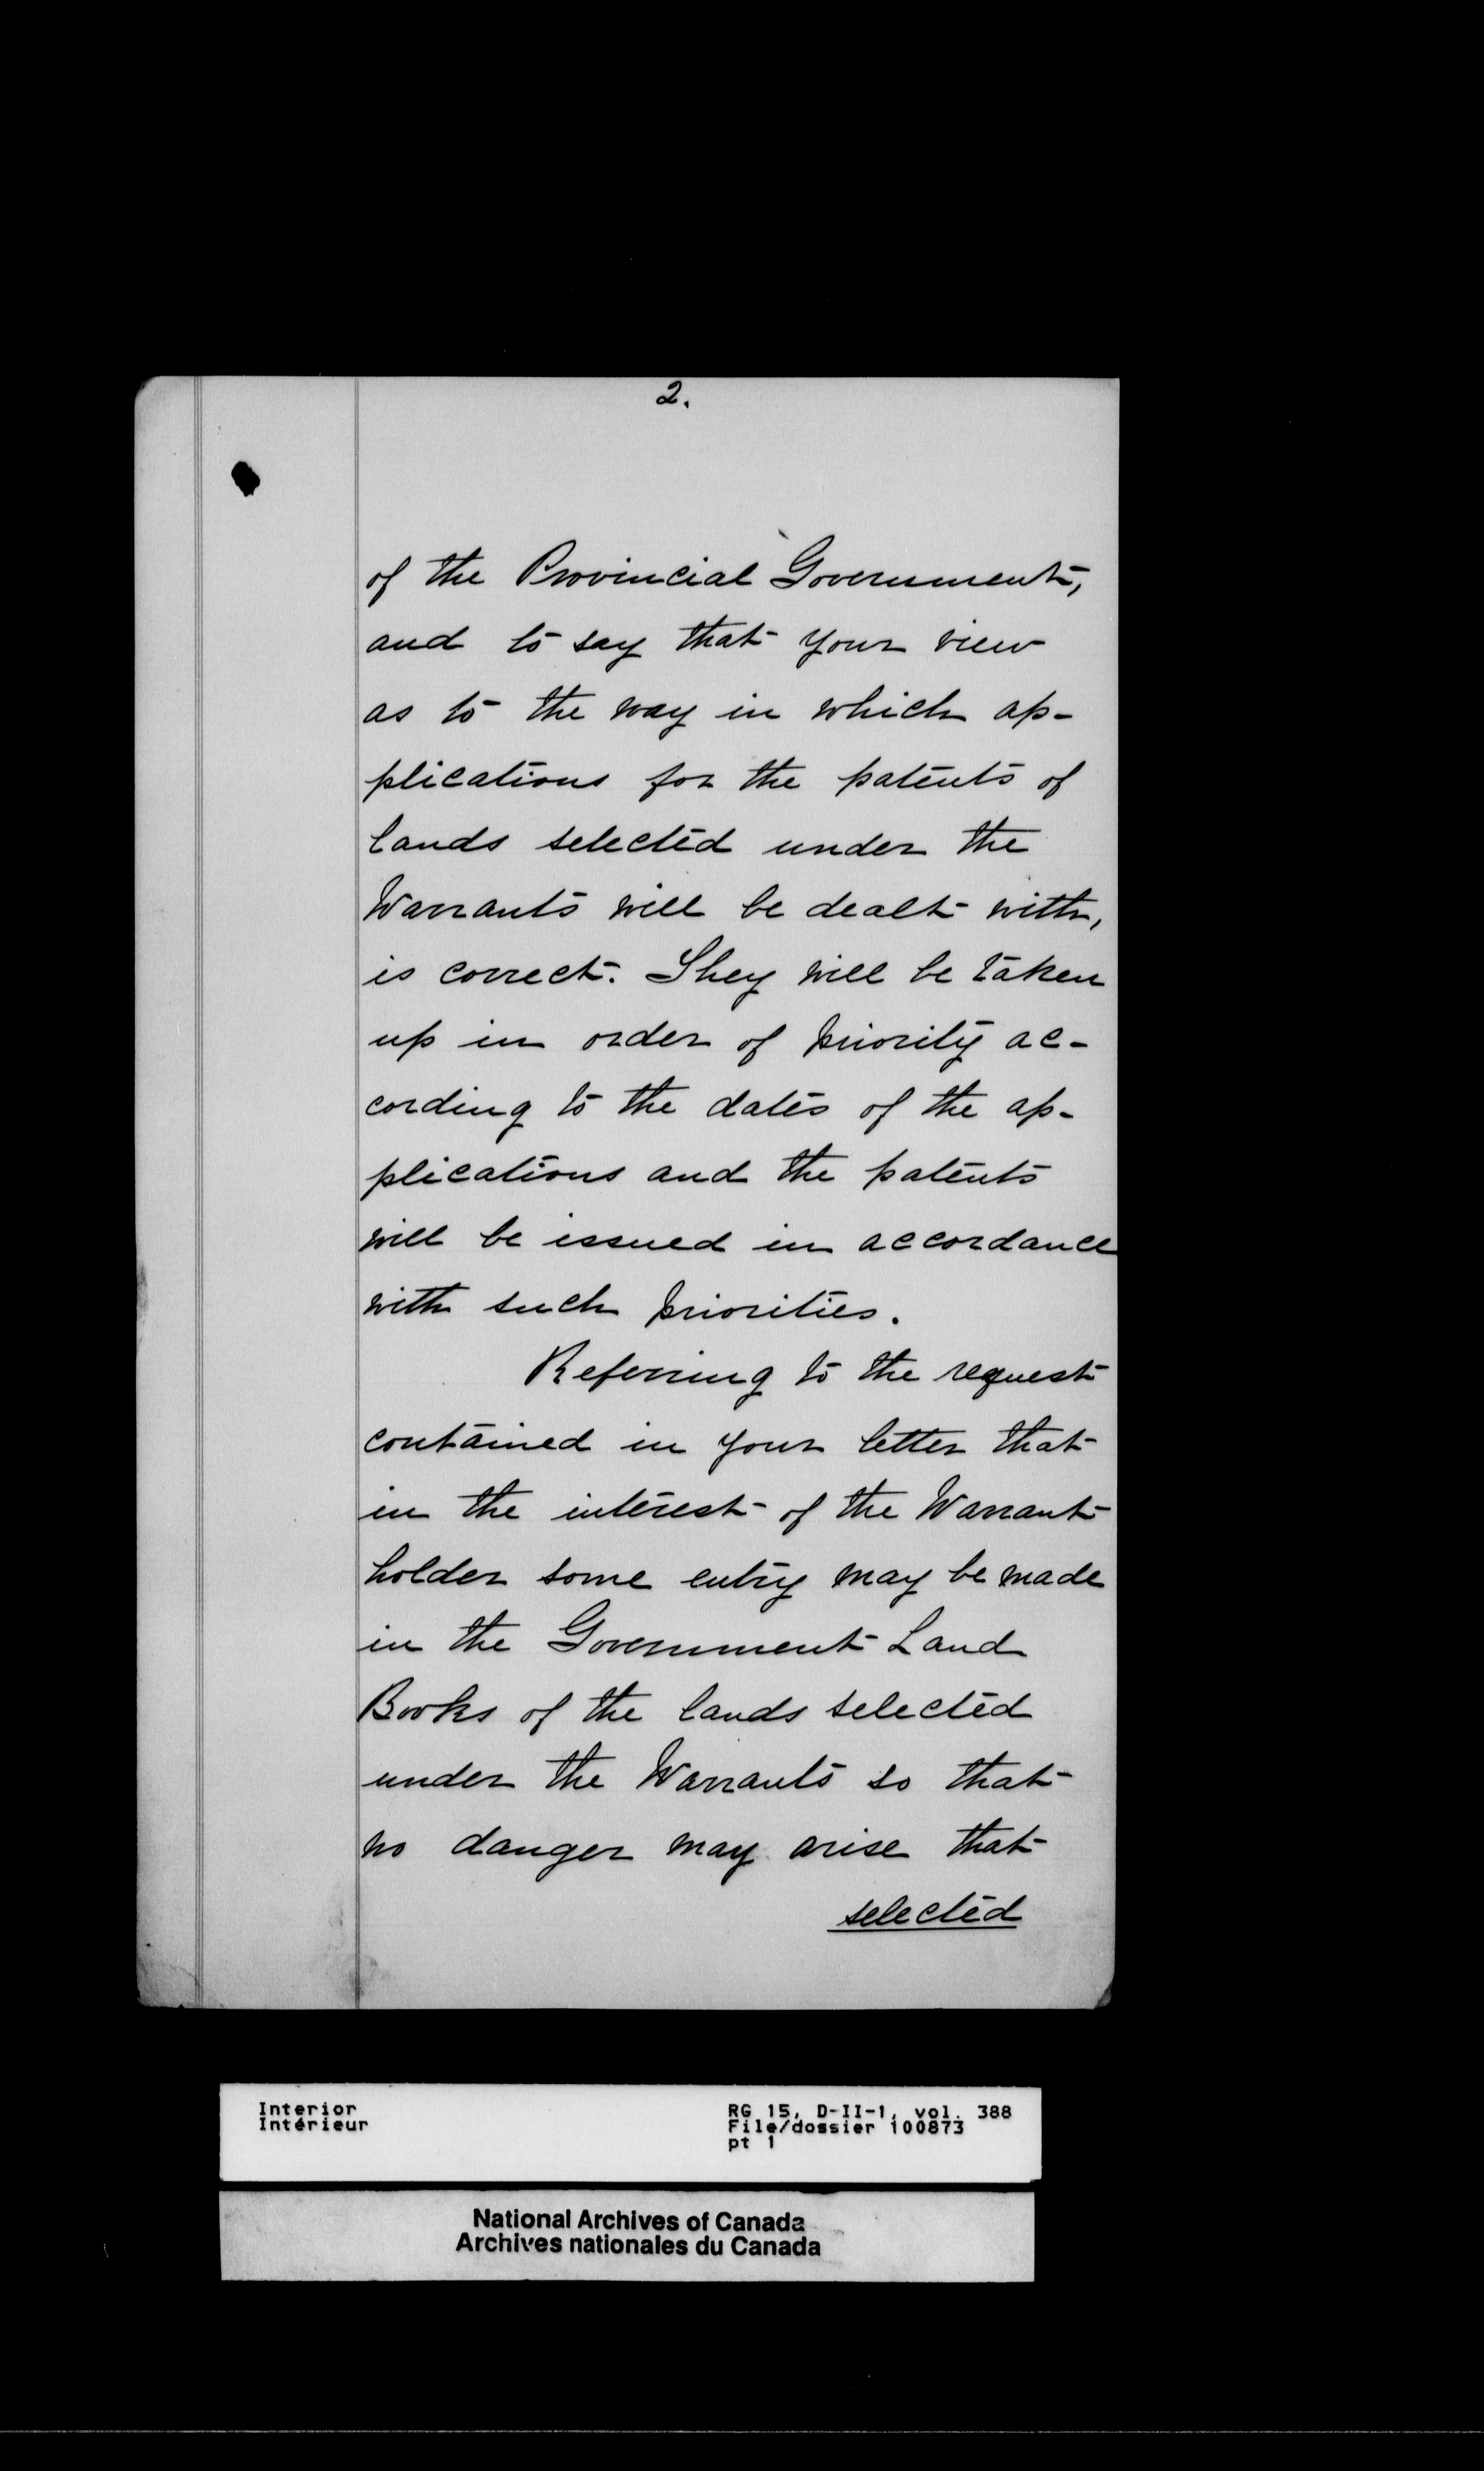 2.
of the Provincial Government,
and to say that your view
as to the way in which ap-
plications for the patents of
lands selected under the
Warrants will be dealt with,
is correct. They will be taken
up in order of priority ac-
cording to the dates of the ap-
plications and the patents
will be issued in accordance
with such priorities.
Referring to the request
contained in your letter that
in the interest of the Warrant
holder some entry may be made
in the Government Land
Books of the lands selected
under the Warrants so that
no danger may arise that
selected
Interior
Intérieur
RG 15, D-II-1, vol. 388
File/dossier 100873
pt 1
National Archives of Canada
Archives nationales du Canada